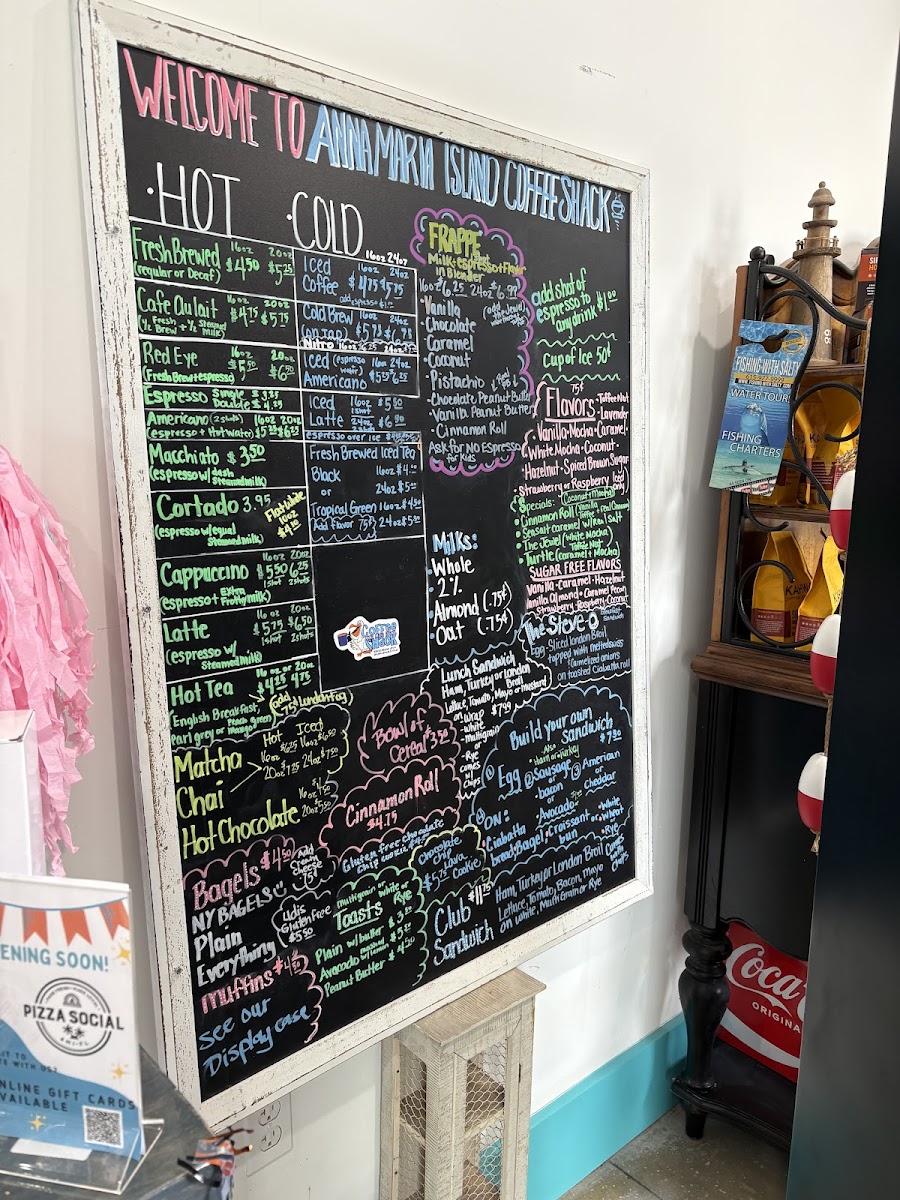 WELCOME TO ANNA MARIA ISLAND COFFEE SHACK
·HOT
Fresh Brewed 16oz 20oz
(regular or Decaf) $4.50 $5.25
Cafe Au lait 16oz 20oz
(½ Fresh Brew + ½ Steamed milk) $4.75 $5.75
Red Eye 16oz 20oz
(Fresh Brew + espresso) $5.50 $6.50
Espresso Single $3.25
Double $4.25
Americano (2 shots) 16oz 20oz
(espresso + Hot water) $5.25 $6.25
Macchiato $3.50
(espresso w/ dash steamed milk)
Cortado 3.95
(espresso w/ equal Steamed milk)
Flat white
10oz
$4.90
Cappuccino 16oz 20oz
$5.50 6.25
1 shot 2 shots
(espresso + Extra Frothy milk)
Latte 16oz 20oz
$5.75 $6.50
1 shot 2 shots
(espresso w/ Steamed milk)
Hot Tea 16oz or 20oz
$4.25 4.75
English Breakfast, Peach green
earl grey or Mango
(add 75¢ London Fog)
Hot Iced
Matcha
16oz $6.25 16oz $6.50
Chai
20oz 7.25 24oz $7.50
Hot Chocolate 16oz $4.50
20oz $5.50
·COLD
16oz 24oz
Iced Coffee 16oz 24oz
$4.75 $5.75
add espresso $1.00
Cold Brew 16oz 24oz
(on tap) $5.75
Nitro
Iced (espresso water) 16oz 24oz
Americano
Iced Latte 16oz $5.50
24oz
espresso over ice
Fresh Brewed Iced Tea
Black 16oz $4.00
or 24oz $5.00
Tropical Green 16oz $4.00
Add flavor 75¢ 24oz $5.00
COFFEE SHACK
FRAPPE
Milk + espresso + Flavor
in Blender
16oz $6.25 24oz $6.99
·Vanilla
·Chocolate
·Caramel
·Coconut
·Pistachio
·Chocolate Peanut Butter
·Vanilla Peanut Butter
·Cinnamon Roll
Ask for NO Espresso
for Kids
add shot of
espresso to
any drink $1.00
Cup of Ice 50¢
75¢
Flavors ·Toffee Nut
·Lavender
·Vanilla·Mocha·Caramel
·White Mocha·Coconut·
Hazelnut·Spiced Brown Sugar
·Strawberry or Raspberry Iced only
Specials: (Coconut + Mocha)
·Cinnamon Roll
·Sea salt caramel w/ real Salt
·The Jewel (White Mocha Toffee Nut)
·Turtle (caramel + Mocha)
SUGAR FREE FLAVORS
Vanilla·Caramel·Hazelnut
Vanilla Almond·Caramel Pecan
Strawberry·Raspberry·Coconut
Milks:
·Whole
·2%
·Almond (.75¢)
·Oat (.75¢)
The Steve-O
Breakfast Sandwich
Egg·Sliced London Broil
topped with melted swiss
·Carmelized onions
on toasted Ciabatta roll
Lunch Sandwich
Ham, Turkey or London Broil
Lettuce, Tomato, Mayo or Mustard
on Wrap $7.99
·White
·Multigrain
or
·Rye
comes w/ chips
Build your own
Sandwich
$7.50
·Also Ham or Turkey
① Egg ② Sausage ③ American
or bacon or
Avocado Cheddar
ON:
Ciabatta
bread Bagel, Croissant
or bun
·White
·wheat
·Rye
Bowl of
Cereal $3.50
Cinnamon Roll
$4.75
Gluten free chocolate
chip cookie
Chocolate
chip
Lava
Cookie
$5.75
Bagels $4.50
Add Cream cheese 75¢
NY BAGELS
Plain
Everything
Udis
Gluten Free
$5.50
Muffins $4.50
See our
Display case
multigrain or White or
Toasts Rye
Plain w/ butter $3.50
Avocado mashed w/ lemon $5.50
Peanut Butter $4.50
Club $11.75
Sandwich
Ham, Turkey or London Broil
Lettuce, Tomato, Bacon, Mayo
on White, Multi Grain or Rye
Comes w/ chips
FISHING WITH SALTY
WATER TOURS
FISHING
CHARTERS
Coca
ORIGINA
OPENING SOON!
PIZZA SOCIAL
AMI·FL
ONLINE GIFT CARDS
AVAILABLE